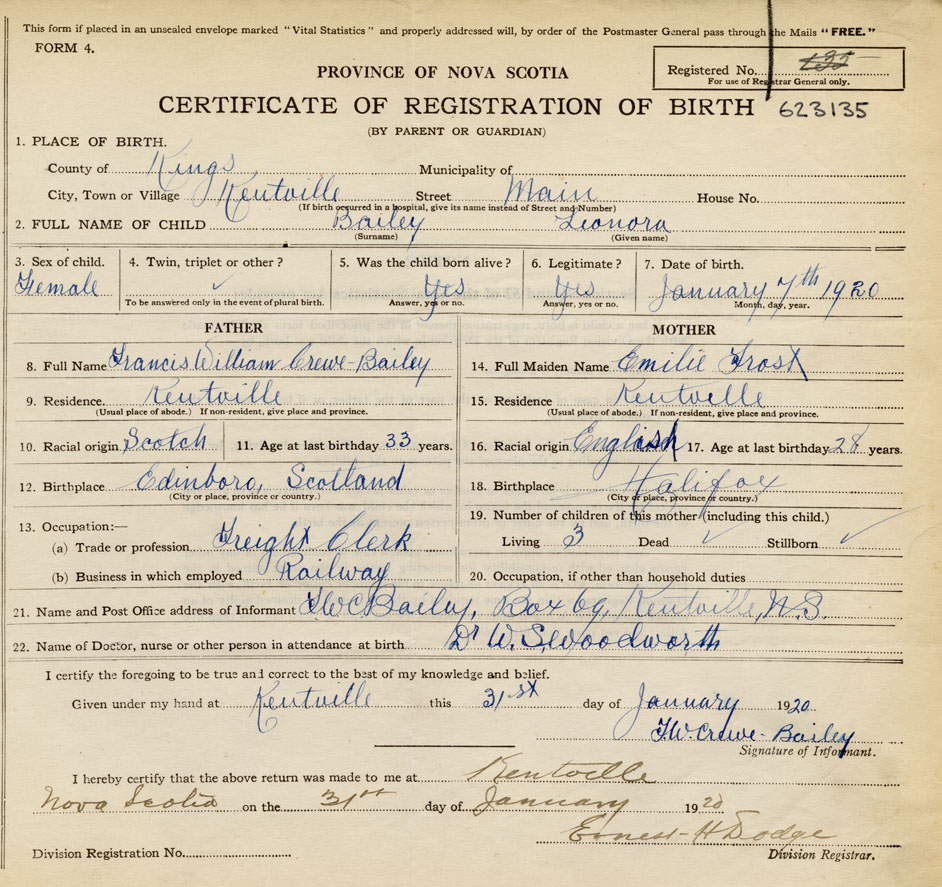 This form if placed in an unsealed envelope marked "Vital Statistics" and properly addressed will, by order of the Postmaster General pass through the Mails "FREE."
FORM 4.
Registered No.
For use of Registrar General only.
PROVINCE OF NOVA SCOTIA
CERTIFICATE OF REGISTRATION OF BIRTH 623135
(BY PARENT OR GUARDIAN)
1. PLACE OF BIRTH.
County of Kings Municipality of
City, Town or Village Kentville Street Main House No.
(If birth occurred in a hospital, give its name instead of Street and Number)
2. FULL NAME OF CHILD Bailey Leonora
(Surname) (Given name)
3. Sex of child. 4. Twin, triplet or other? 5. Was the child born alive? 6. Legitimate? 7. Date of birth.
Female ✓ Yes Yes January 7th 1920
To be answered only in the event of plural birth. Answer, yes or no. Answer, yes or no. Month, day, year.
FATHER MOTHER
8. Full Name Francis William Crewe-Bailey 14. Full Maiden Name Emilie Frost
9. Residence. Kentville 15. Residence Kentville
(Usual place of abode.) If non-resident, give place and province. (Usual place of abode.) If non-resident, give place and province.
10. Racial origin Scotch 11. Age at last birthday 33 years. 16. Racial origin English 17. Age at last birthday 28 years.
12. Birthplace Edinboro, Scotland 18. Birthplace Halifax
(City or place, province or country.) (City or place, province or country.)
13. Occupation:— 19. Number of children of this mother (including this child.)
(a) Trade or profession Freight Clerk Living 3 Dead ✓ Stillborn ✓
(b) Business in which employed Railway 20. Occupation, if other than household duties
21. Name and Post Office address of Informant FWCBailey, Box 69, Kentville, N.S.
22. Name of Doctor, nurse or other person in attendance at birth Dr W.S. Woodworth
I certify the foregoing to be true and correct to the best of my knowledge and belief.
Given under my hand at Kentville this 31st day of January 1920
FW Crewe-Bailey
Signature of Informant.
I hereby certify that the above return was made to me at Kentville
Nova Scotia on the 31st day of January 1920
Ernest H Dodge
Division Registration No. Division Registrar.